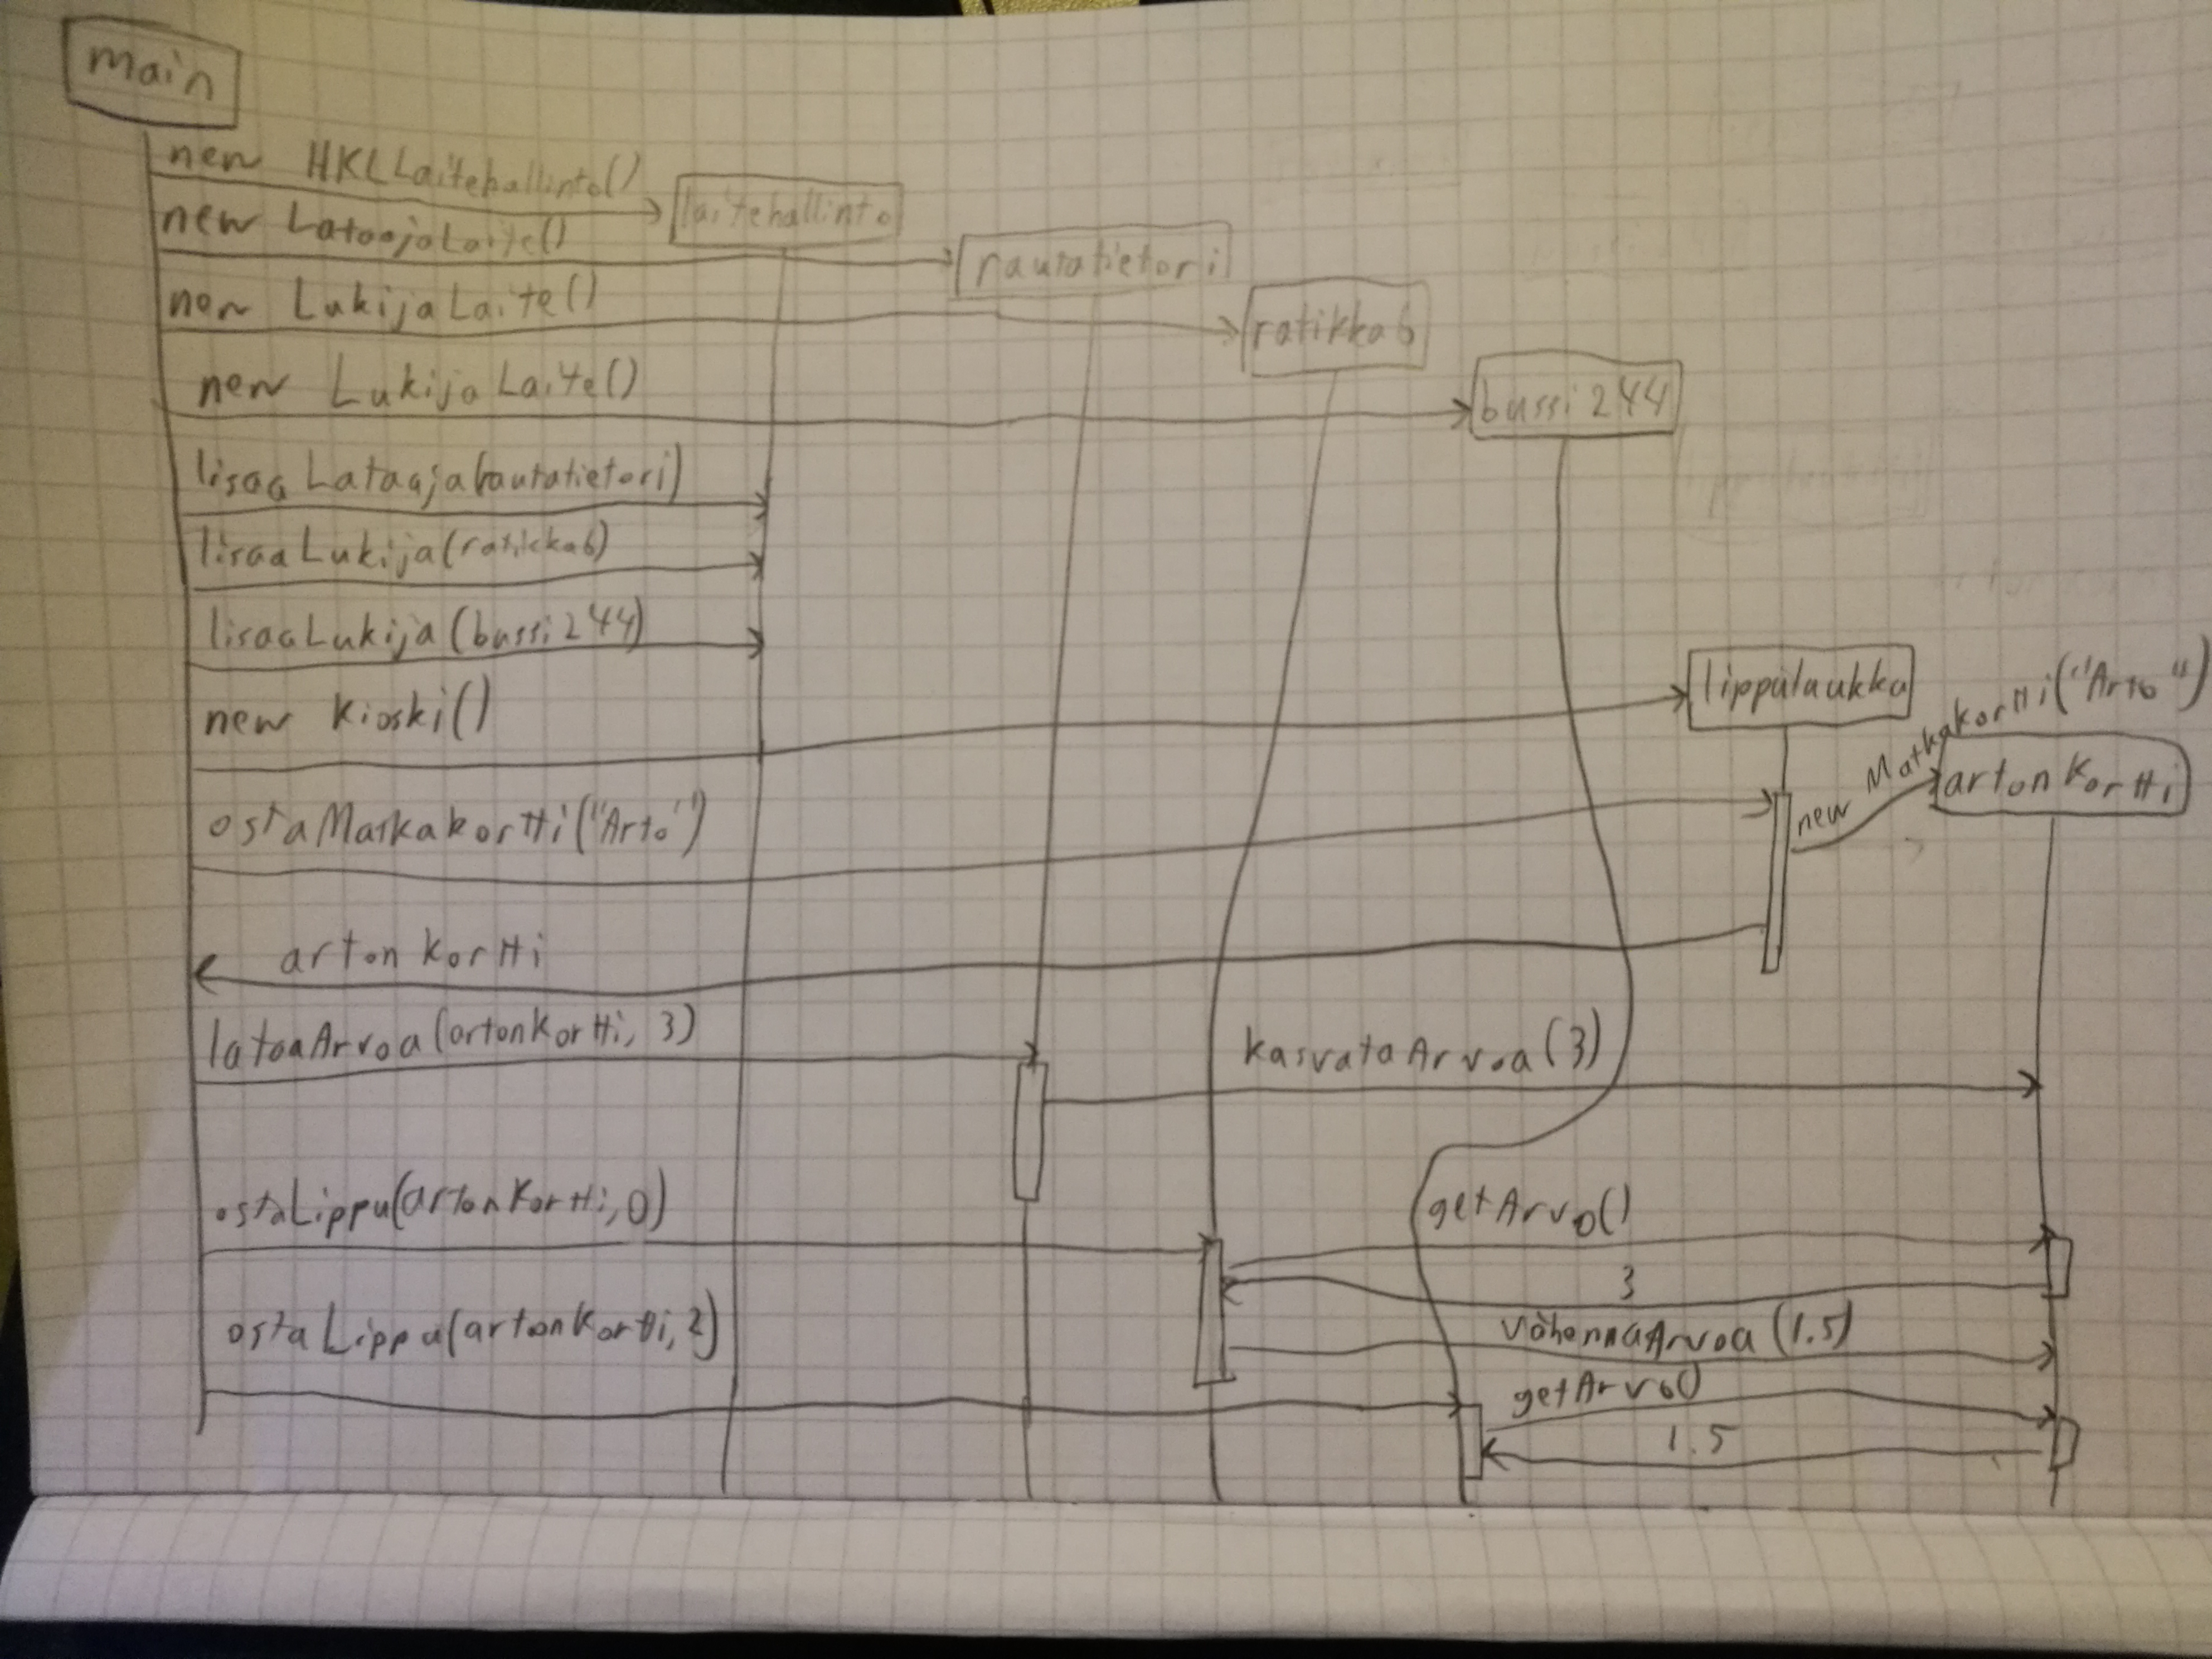 main
new HKLLaitehallinto()
laitehallinto
new LataajaLaite()
rautatietori
new LukijaLaite()
ratikka6
new LukijaLaite()
bussi244
lisaaLataaja(rautatietori)
lisaaLukija(ratikka6)
lisaaLukija(bussi244)
new Kioski()
lippulaukku
ostaMatkakortti("Arto")
new Matkakortti("Arto")
artonKortti
artonKortti
lataaArvoa(artonKortti, 3)
kasvataArvoa(3)
ostaLippu(artonKortti, 0)
getArvo()
3
vähennäArvoa(1.5)
ostaLippu(artonKortti, 2)
getArvo()
1.5